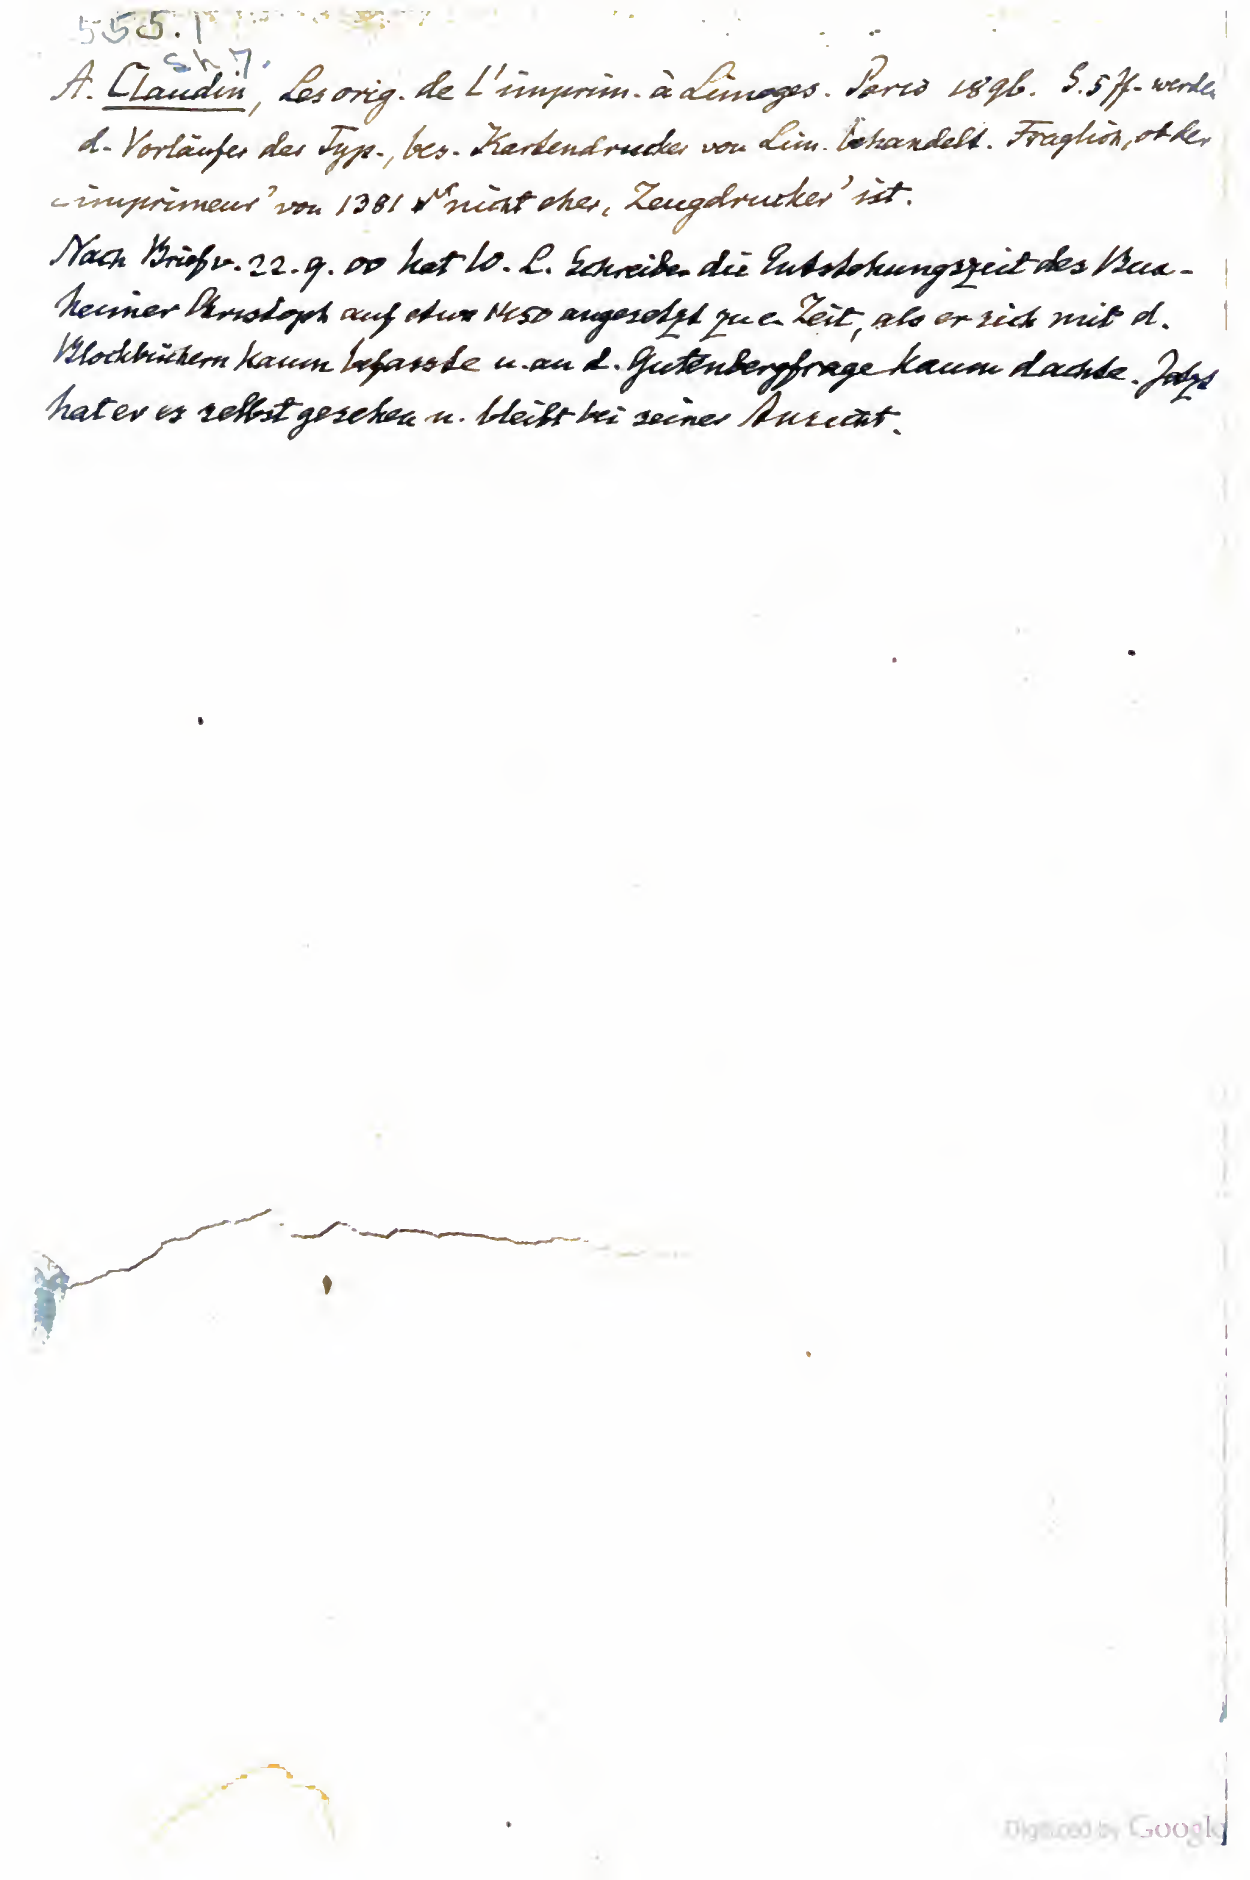 555.1
Sh 7.
A. Claudin, Les orig. de L'imprim. à Limoges. Paris 1896. S. 5 ff. werden
d. Vorläufer der Typ., bes. Kartendrucker von Lim. behandelt. Fraglich, ob der
‚imprimeur’ von 1381 nicht eher ‚Zeugdrucker’ ist.
Nach Brief v. 22.9.00 hat W. L. Schreiber die Entstehungszeit des Bux-
heimer Christoph auf etwa 1450 angesetzt zu e. Zeit, als er sich mit d.
Blockbüchern kaum befasste u. an d. Gutenbergfrage kaum dachte. Jetzt
hat er es selbst gesehen u. bleibt bei seiner Ansicht.
Digitized by Google